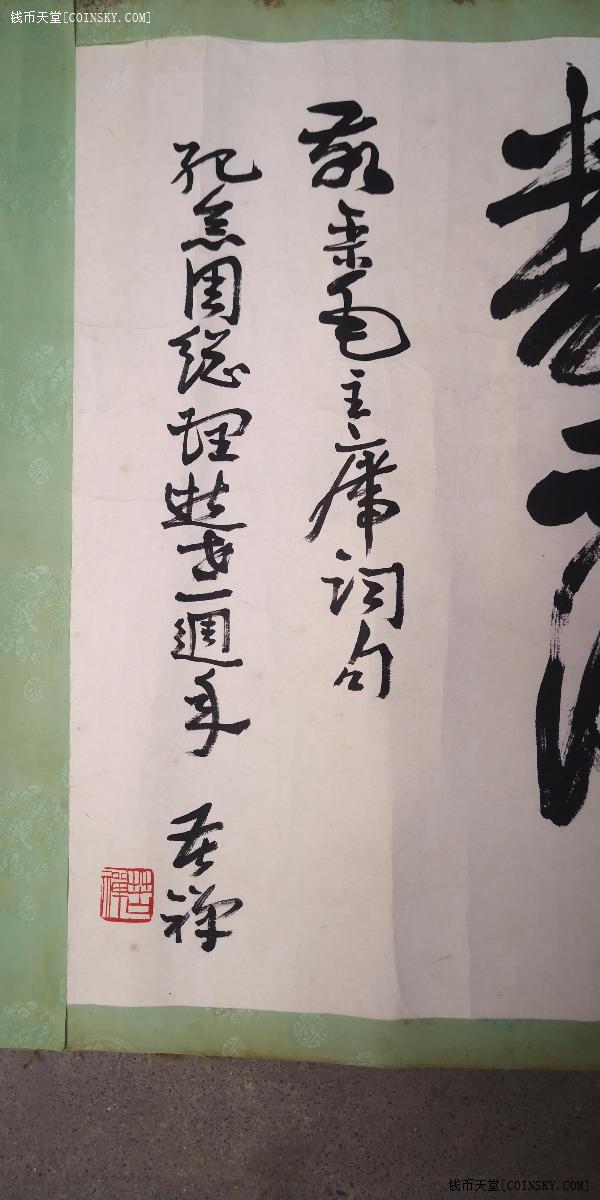 钱币天堂[COINSKY.COM]
敬录毛主席词句
纪念周總理逝世一週年
苦禅
苦禪
钱币天堂[COINSKY.COM]